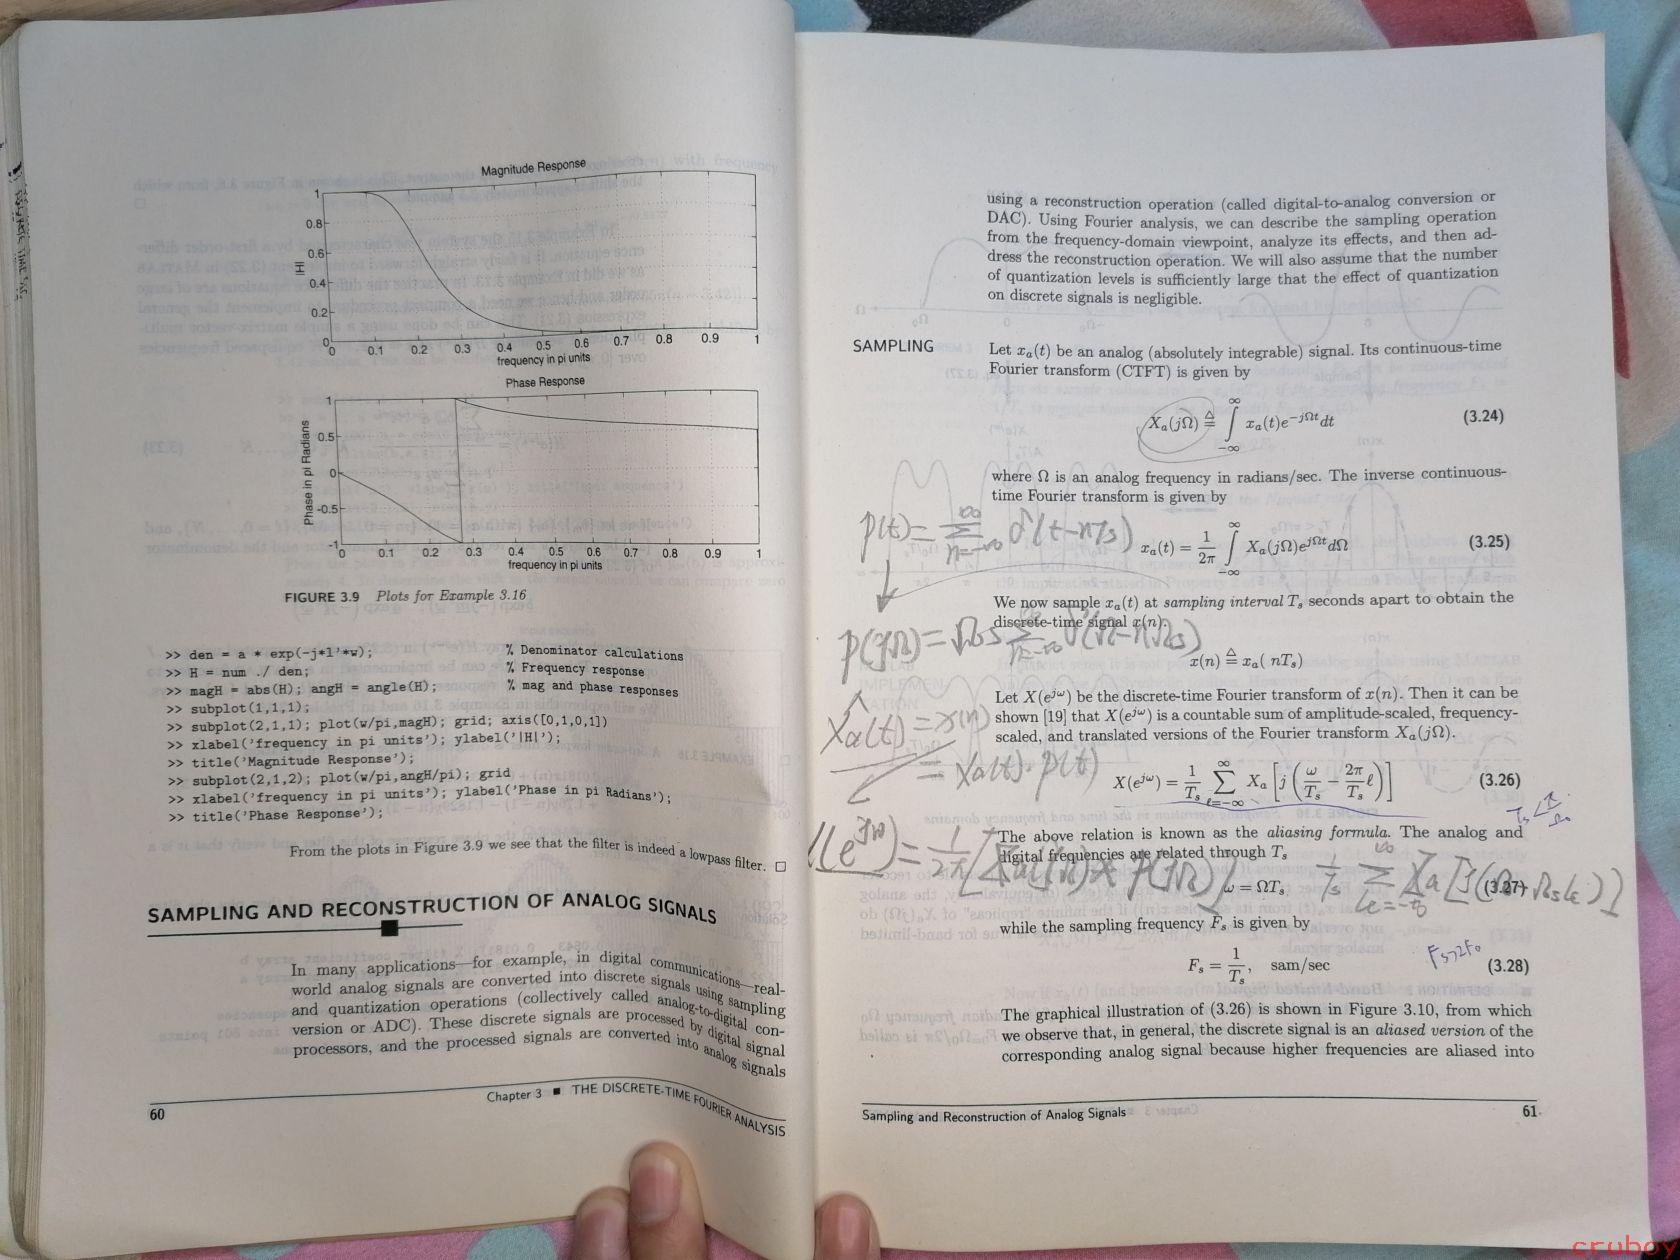 Magnitude Response
1
0.8
0.6
0.4
0.2
0
|H|
0 0.1 0.2 0.3 0.4 0.5 0.6 0.7 0.8 0.9 1
frequency in pi units
Phase Response
1
0.5
0
-0.5
-1
Phase in pi Radians
0 0.1 0.2 0.3 0.4 0.5 0.6 0.7 0.8 0.9 1
frequency in pi units
FIGURE 3.9 Plots for Example 3.16
>> den = a * exp(-j*l'*w); % Denominator calculations
>> H = num ./ den; % Frequency response
>> magH = abs(H); angH = angle(H); % mag and phase responses
>> subplot(1,1,1);
>> subplot(2,1,1); plot(w/pi,magH); grid; axis([0,1,0,1])
>> xlabel('frequency in pi units'); ylabel('|H|');
>> title('Magnitude Response');
>> subplot(2,1,2); plot(w/pi,angH/pi); grid
>> xlabel('frequency in pi units'); ylabel('Phase in pi Radians');
>> title('Phase Response');
From the plots in Figure 3.9 we see that the filter is indeed a lowpass filter. □
SAMPLING AND RECONSTRUCTION OF ANALOG SIGNALS
In many applications—for example, in digital communications—real-
world analog signals are converted into discrete signals using sampling
and quantization operations (collectively called analog-to-digital con-
version or ADC). These discrete signals are processed by digital signal
processors, and the processed signals are converted into analog signals
Chapter 3 ■ THE DISCRETE-TIME FOURIER ANALYSIS
60
using a reconstruction operation (called digital-to-analog conversion or
DAC). Using Fourier analysis, we can describe the sampling operation
from the frequency-domain viewpoint, analyze its effects, and then ad-
dress the reconstruction operation. We will also assume that the number
of quantization levels is sufficiently large that the effect of quantization
on discrete signals is negligible.
SAMPLING
Let xₐ(t) be an analog (absolutely integrable) signal. Its continuous-time
Fourier transform (CTFT) is given by
Xₐ(jΩ) ≜ ∫_{-∞}^{∞} xₐ(t)e^{-jΩt}dt (3.24)
where Ω is an analog frequency in radians/sec. The inverse continuous-
time Fourier transform is given by
p(t) = Σ_{n=-∞}^{∞} δ(t-nTs)
xₐ(t) = 1/2π ∫_{-∞}^{∞} Xₐ(jΩ)e^{jΩt}dΩ (3.25)
We now sample xₐ(t) at sampling interval Tₛ seconds apart to obtain the
discrete-time signal x(n).
P(jΩ) = Ωs Σ_{n=-∞}^{∞} δ(Ω-nΩs)
x(n) ≜ xₐ( nTₛ)
Let X(e^{jω}) be the discrete-time Fourier transform of x(n). Then it can be
shown [19] that X(e^{jω}) is a countable sum of amplitude-scaled, frequency-
scaled, and translated versions of the Fourier transform Xₐ(jΩ).
Xa(t) = x(n)
= Xa(t)·p(t)
X(e^{jω}) = 1/Tₛ Σ_{ℓ=-∞}^{∞} Xₐ [j (ω/Tₛ − 2π/Tₛ ℓ)] (3.26)
Ts < π/Ω₀
The above relation is known as the aliasing formula. The analog and
digital frequencies are related through Tₛ
(e^{jω}) = 1/2π [Xa(jΩ) * P(jΩ)]
ω = ΩTₛ (3.27)
1/Ts Σ_{k=-∞}^{∞} Xa[j(Ω+Ωsk)]
while the sampling frequency Fₛ is given by
Fs>2F₀
Fₛ = 1/Tₛ, sam/sec (3.28)
The graphical illustration of (3.26) is shown in Figure 3.10, from which
we observe that, in general, the discrete signal is an aliased version of the
corresponding analog signal because higher frequencies are aliased into
Sampling and Reconstruction of Analog Signals
61
cruboy